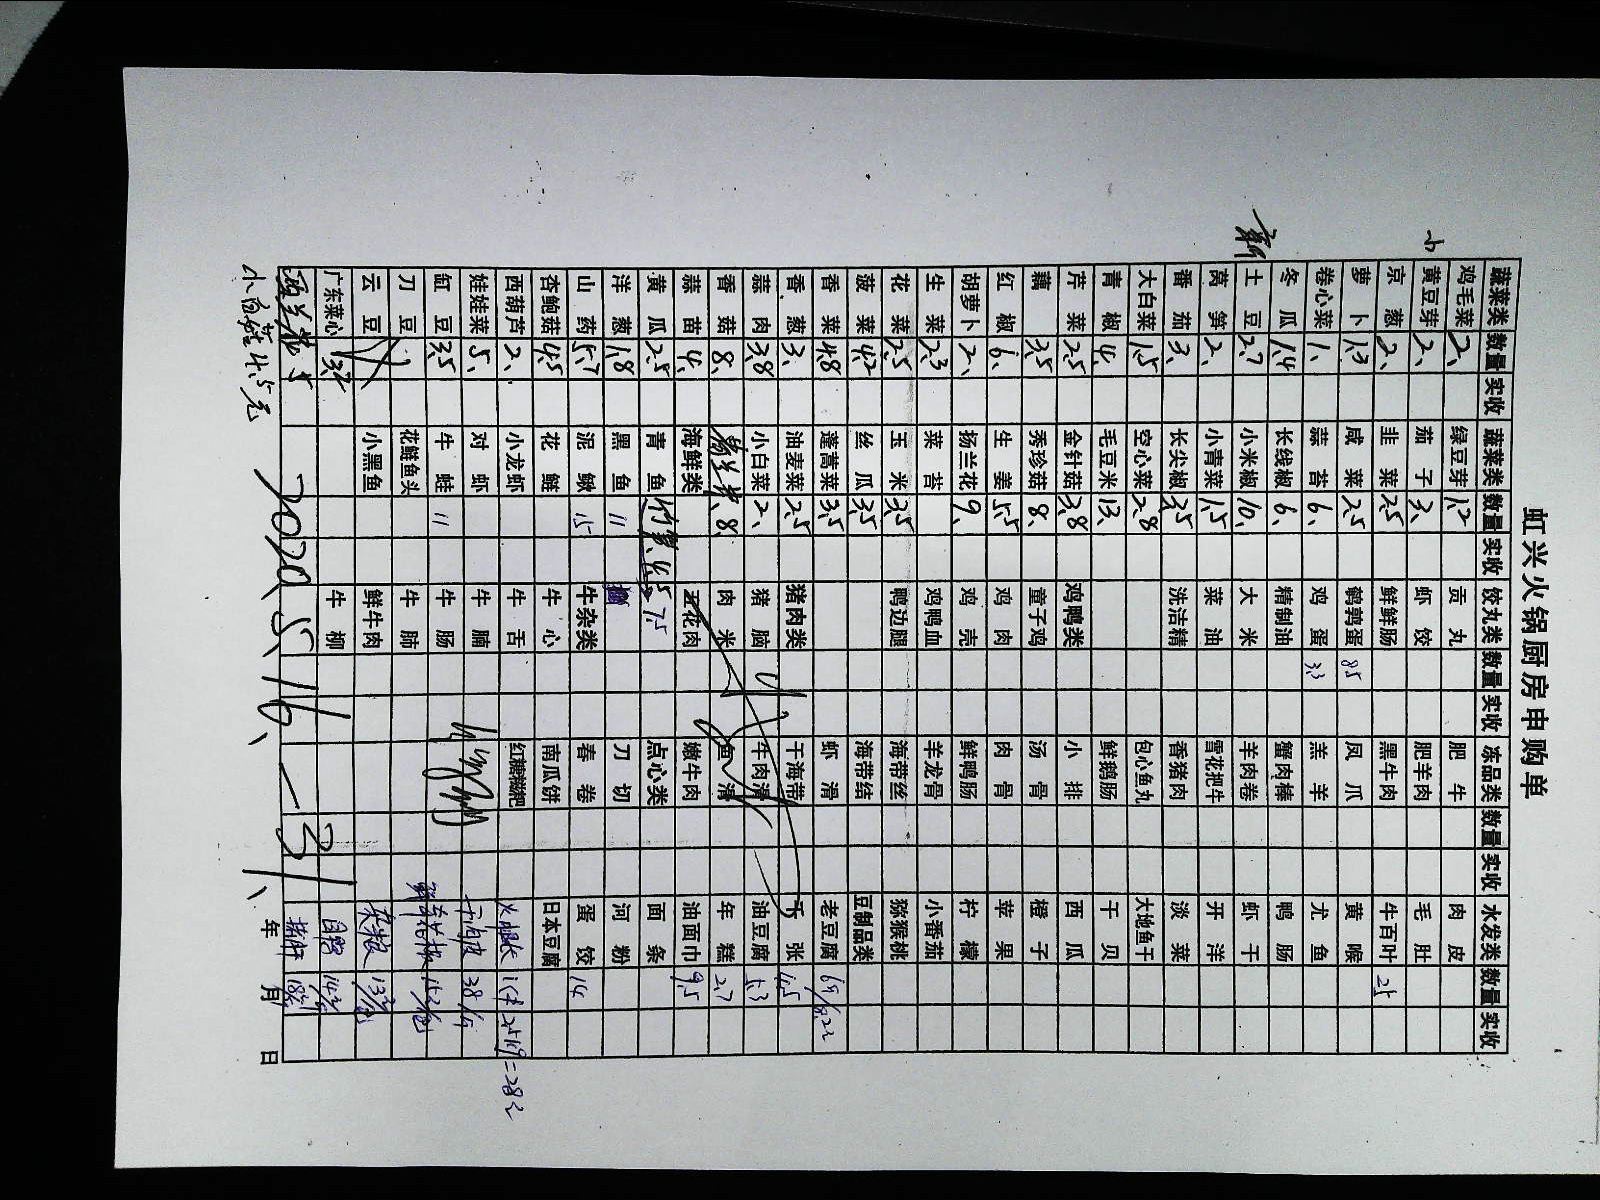 虹兴火锅厨房申购单
蔬菜类 数量 实收 蔬菜类 数量 实收 饺丸类 数量 实收 冻品类 数量 实收 水发类 数量 实收
鸡毛菜 2、 绿豆芽 1.2 贡丸 肥牛 肉皮
小 黄豆芽 2、 茄子 3、 虾饺 肥羊肉 毛肚
京葱 2、 韭菜 2.5 鲜鲜肠 黑牛肉 牛百叶 25
萝卜 1.3 咸菜 2.5 鹌鹑蛋 8.5 凤爪 黄喉
卷心菜 1、 蒜苔 6、 鸡蛋 3.3 羔羊 尤鱼
冬瓜 1.4 长线椒 6、 精制油 蟹肉棒 鸭肠
新 土豆 2.7 小米椒 10、 大米 羊肉卷 虾干
莴笋 2、 小青菜 1.5 菜油 雪花把牛 开洋
番茄 3、 长尖椒 3.5 洗洁精 香猪肉 淡菜
大白菜 1.5 空心菜 2.8 包心鱼丸 大地鱼干
青椒 4、 毛豆米 13、 鲜鹅肠 干贝
芹菜 2.5 金针菇 3.8 鸡鸭类 小排 西瓜
藕 3.5 秀珍菇 8、 童子鸡 汤骨 橙子
红椒 6、 生姜 5.5 鸡肉 肉骨 苹果
胡萝卜 2、 扬兰花 9、 鸡壳 鲜鸭肠 柠檬
生菜 2.3 菜苔 鸡鸭血 羊龙骨 小番茄
花菜 2.5 玉米 3.5 鸭边腿 海带丝 猕猴桃
菠菜 4.2 丝瓜 3.5 海带结 豆制品类
香菜 4.8 蓬蒿菜 3.5 虾滑 老豆腐
香葱 3、 油麦菜 2.5 猪肉类 干海带 千张 4.5
蒜肉 3.8 小白菜 2、 猪脑 牛肉滑 油豆腐 5.3
香菇 8、 8、 肉米 鱼滑 年糕 2.7
蒜苗 4、 海鲜类 五花肉 嫩牛肉 油面巾 9.5
黄瓜 2.5 青鱼 7.5 点心类 面条
洋葱 1.8 黑鱼 11 刀切 河粉
山药 5.7 泥鳅 15 牛杂类 春卷 蛋饺 14
杏鲍菇 4.5 花鲢 牛心 南瓜饼 日本豆腐
西葫芦 2、 小龙虾 牛舌 红糖糍粑
娃娃菜 5、 对虾 牛腩
缸豆 3.5 牛蛙 11 牛肠
刀豆 花鲢鱼头 牛肺
云豆 小黑鱼 鲜牛肉
广东菜心 3.2 牛柳
西兰花 5
2020.5.16、
年 月 日